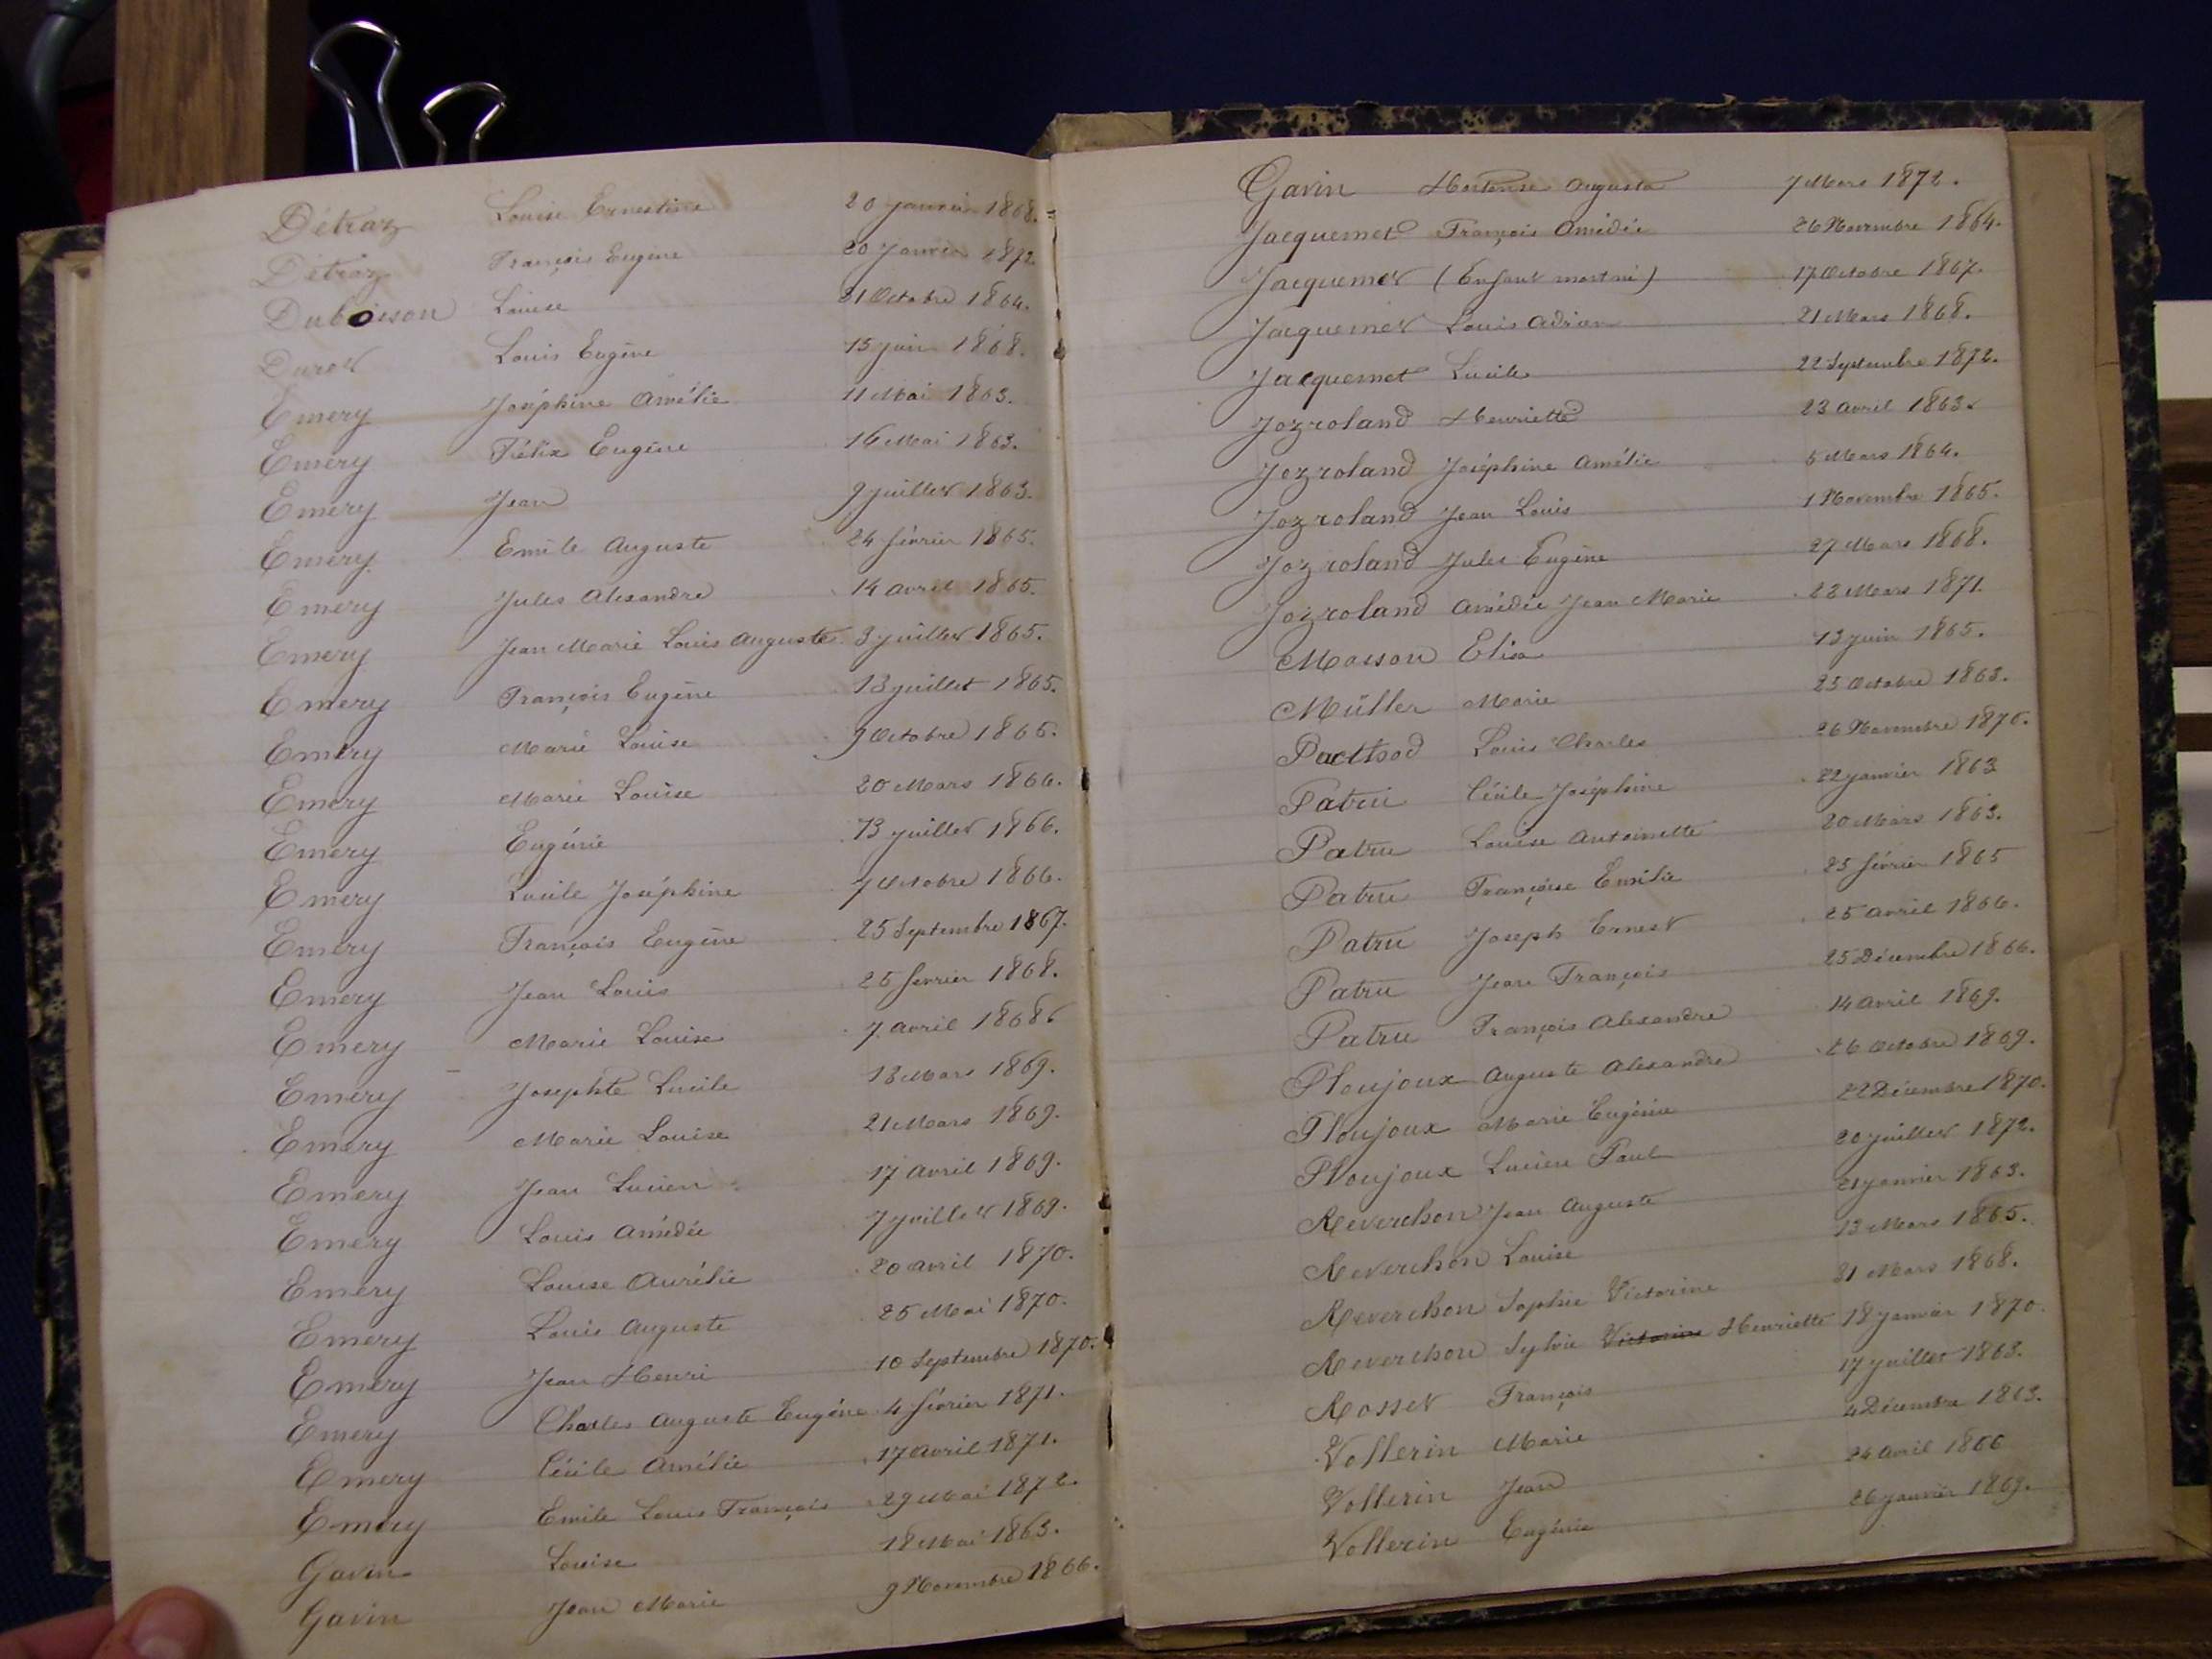 Détraz Louise Ernestine 20 janvier 1868.
Détraz François Eugène 20 Janvier 1872.
Duboisson Louise 31 Octobre 1864.
Duret Louis Eugène 15 juin 1868.
Emery Joséphine Amélie 11 Mai 1863.
Emery Félix Eugène 16 Mai 1863.
Emery Jean 9 juillet 1863.
Emery Emile Auguste 24 février 1865.
Emery Jules Alexandre 14 avril 1865.
Emery Jean Marie Louis Auguste 3 juillet 1865.
Emery François Eugène 13 juillet 1865.
Emery Marie Louise 9 Octobre 1865.
Emery Marie Louise 20 Mars 1866.
Emery Eugénie 13 juillet 1866.
Emery Lucile Joséphine 7 Octobre 1866.
Emery François Eugène 25 Septembre 1867.
Emery Jean Louis 25 février 1868.
Emery Marie Louise 7 avril 1868
Emery Josephte Lucile 13 Mars 1869.
Emery Marie Louise 21 Mars 1869.
Emery Jean Lucien 17 avril 1869.
Emery Louis Amédée 7 juillet 1869.
Emery Louise Aurélie 20 avril 1870.
Emery Louis Auguste 25 Mai 1870.
Emery Jean Henri 10 Septembre 1870.
Emery Charles Auguste Eugène 4 février 1871.
Emery Cécile Amélie 17 avril 1871.
Emery Emile Louis François 29 Mai 1872.
Gavin Louise 18 Mai 1863.
Gavin Jean Marie 9 Novembre 1866.
Gavin Hortense Augusta 7 Mars 1872.
Jacquemet François Amédée 26 Novembre 1864.
Jacquemet (Enfant mort né) 17 Octobre 1867.
Jacquemet Louis Adrien 21 Mars 1868.
Jacquemet Lucile 22 Septembre 1872.
Jozroland Henriette 23 avril 1863.
Jozroland Joséphine Amélie 5 Mars 1864.
Jozroland Jean Louis 1 Novembre 1865.
Jozroland Jules Eugène 27 Mars 1868.
Jozroland Amédée Jean Marie 23 Mars 1871.
Masson Elisa 13 juin 1865.
Müller Marie 25 Octobre 1863.
Pacthod Louis Charles 26 Novembre 1870.
Patru Cécile Joséphine 22 janvier 1863
Patru Louise Antoinette 20 Mars 1863.
Patru Françoise Emilie 25 février 1865
Patru Joseph Ernest 25 avril 1866.
Patru Jean François 25 Décembre 1866.
Patru François Alexandre 14 avril 1869.
Ploujoux Auguste Alexandre 26 Octobre 1869.
Ploujoux Marie Eugénie 22 Décembre 1870.
Ploujoux Lucien Paul 20 juillet 1872.
Reverchon Jean Auguste 21 janvier 1863.
Reverchon Louise 13 Mars 1865.
Reverchon Sophie Victorine 31 Mars 1868.
Reverchon Sylvie Victorine Henriette 18 janvier 1870.
Rosset François 17 juillet 1863.
Vollerin Marie 4 Décembre 1863.
Vollerin Jean 24 avril 1866
Vollerin Eugénie 26 janvier 1869.